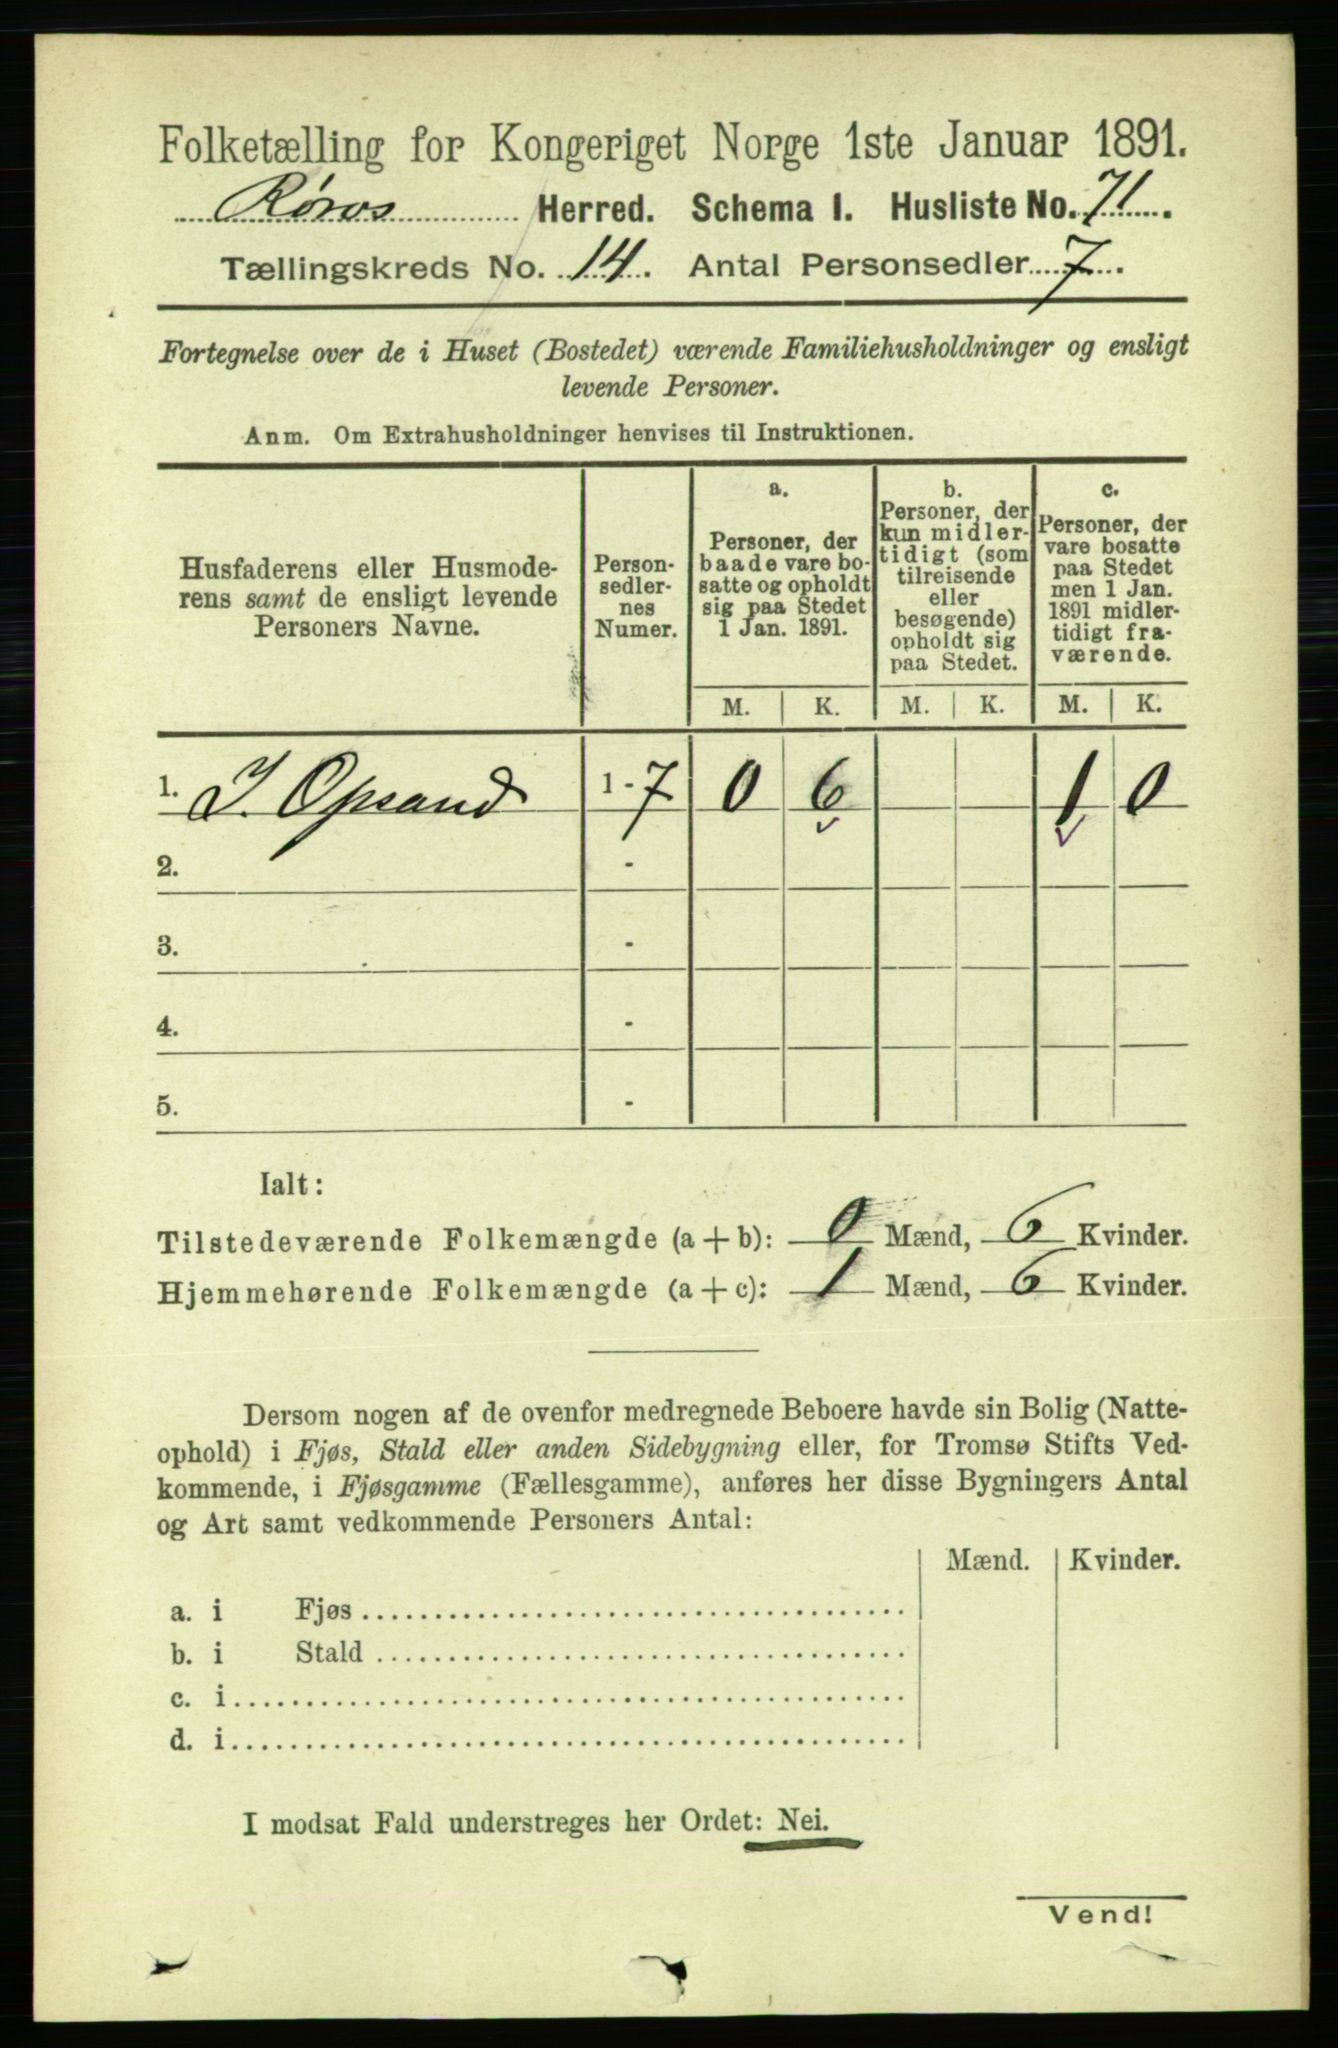 Folketælling for Kongeriget Norge 1ste Januar 1891.
Røros Herred. Schema 1. Husliste No. 71.
Tællingskreds No. 14. Antal Personsedler 7.
Fortegnelse over de i Huset (Bostedet) værende Familiehusholdninger og ensligt
levende Personer.
Anm. Om Extrahusholdninger henvises til Instruktionen.
Husfaderens eller Husmode-
rens samt de ensligt levende
Personers Navne.
Person-
sedler-
nes
Numer.
a.
Personer, der
baade vare bo-
satte og opholdt
sig paa Stedet
1 Jan. 1891.
b.
Personer, der
kun midler-
tidigt (som
tilreisende
eller
besøgende)
opholdt sig
paa Stedet.
c.
Personer, der
vare bosatte
paa Stedet
men 1 Jan.
1891 midler-
tidigt fra-
værende.
M. K. M. K. M. K.
1. J. Opsand 1 - 7 0 6 1 0
2. -
3. -
4. -
5. -
Ialt:
Tilstedeværende Folkemængde (a + b): 0 Mænd, 6 Kvinder.
Hjemmehørende Folkemængde (a + c): 1 Mænd, 6 Kvinder.
Dersom nogen af de ovenfor medregnede Beboere havde sin Bolig (Natte-
ophold) i Fjøs, Stald eller anden Sidebygning eller, for Tromsø Stifts Ved-
kommende, i Fjøsgamme (Fællesgamme), anføres her disse Bygningers Antal
og Art samt vedkommende Personers Antal:
Mænd. Kvinder.
a. i Fjøs
b. i Stald
c. i
d. i
I modsat Fald understreges her Ordet: Nei.
Vend!